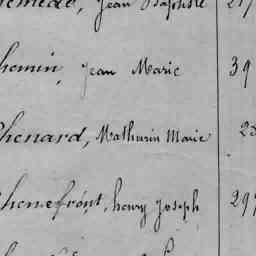 Jean Baptiste
hemin, Jean Marie 39
Chenard, Mathurin Marie
Chenefront, henry Joseph 297